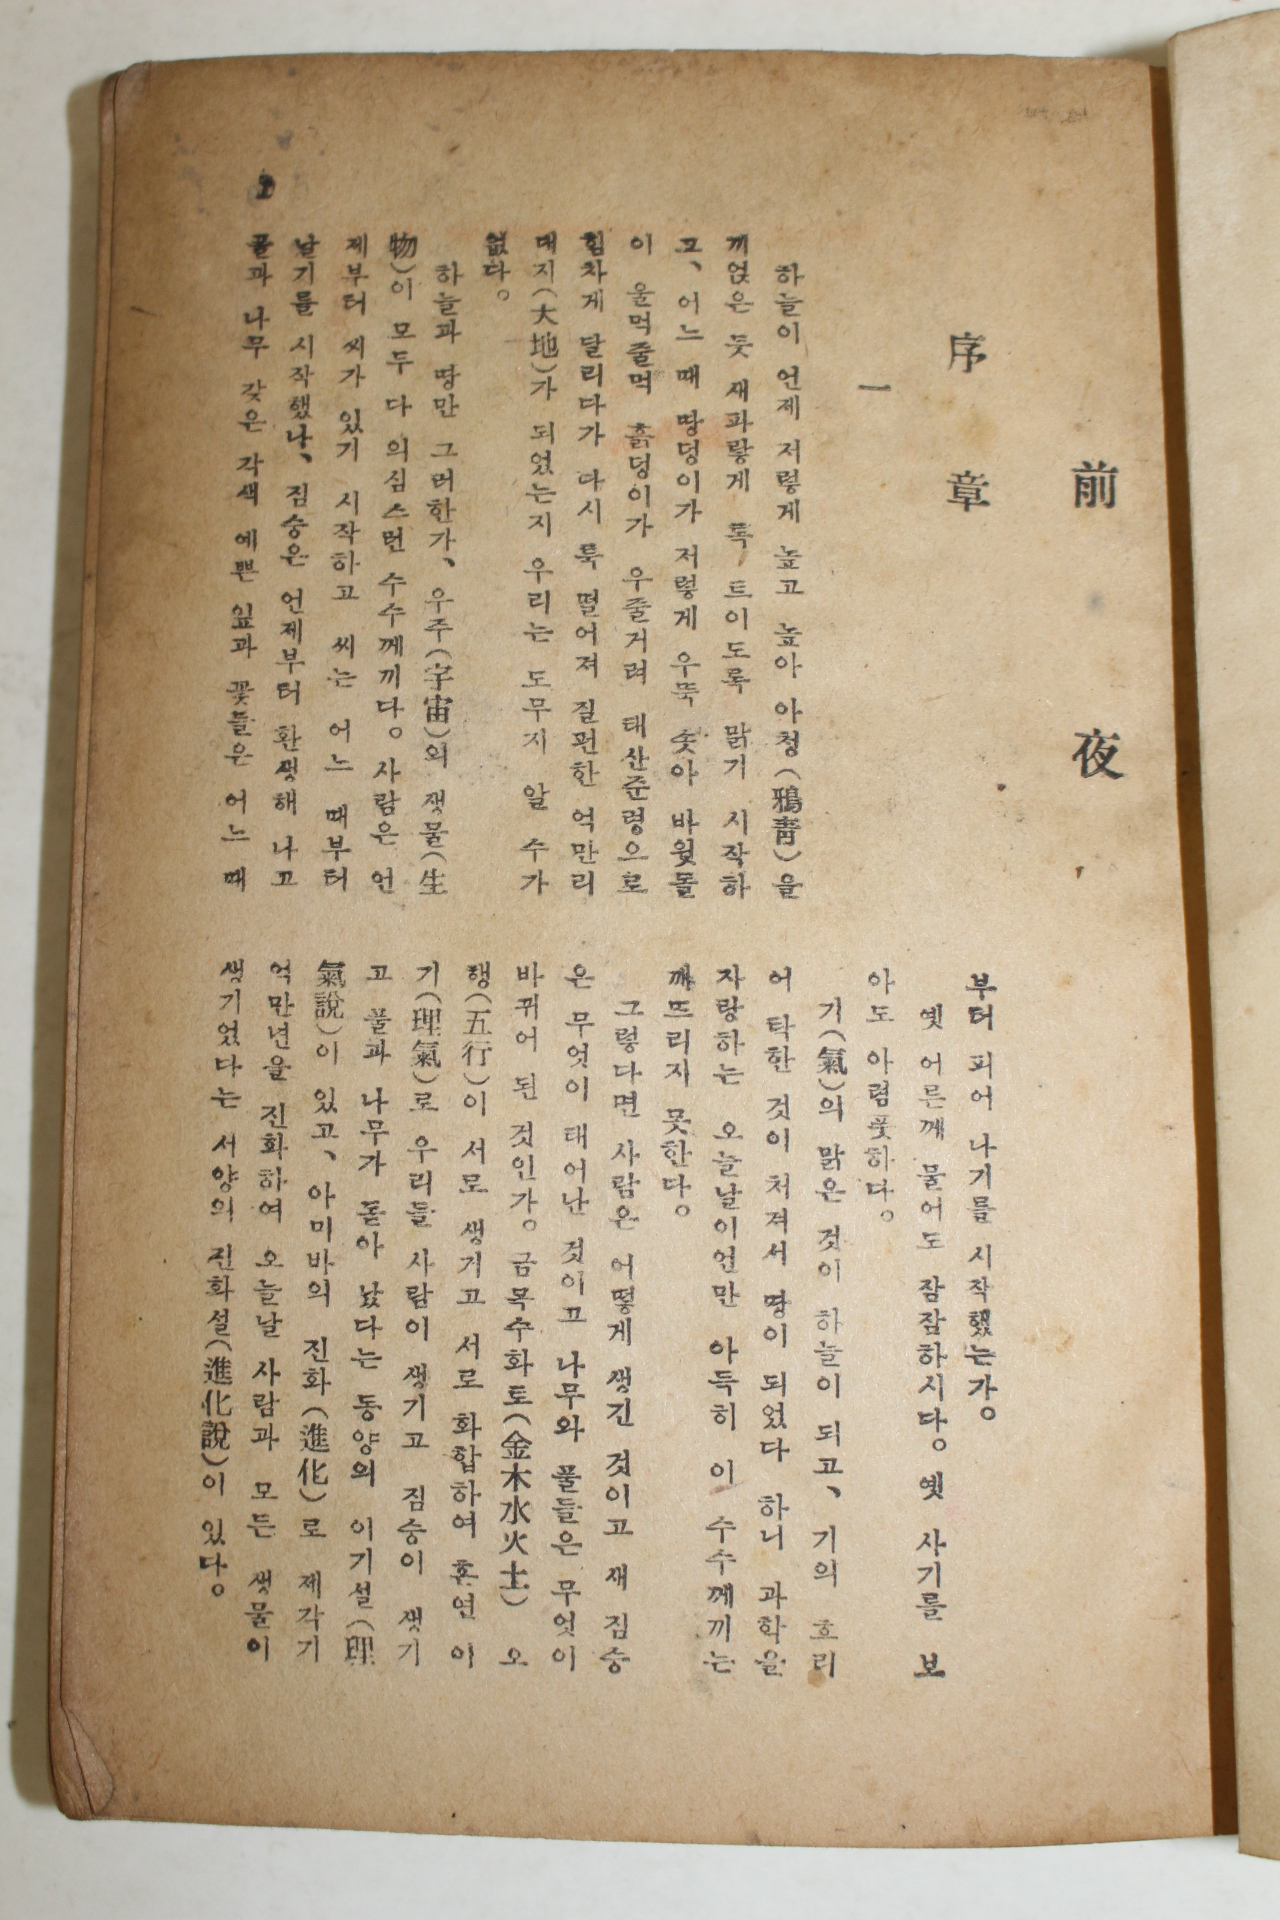 前夜
序章
一
하늘이 언제 저렇게 높고 높아 아청(鴉靑)을
끼얹은 듯 새파랗게 톡 트이도록 맑기 시작하
고、어느 때 땅덩이가 저렇게 우뚝 솟아 바윗돌
이 울먹줄먹 흙덩이가 우줄거려 태산준령으로
힘차게 달리다가 다시 뚝 떨어져 질펀한 억만리
대지(大地)가 되었는지 우리는 도무지 알 수가
없다。
하늘과 땅만 그러한가、우주(宇宙)의 생물(生
物)이 모두 다 의심스런 수수께끼다。사람은 언
제부터 씨가 있기 시작하고 씨는 어느 때부터
날기를 시작했나、짐승은 언제부터 환생해 나고
풀과 나무 갖은 각색 예쁜 잎과 꽃들은 어느 때
부터 피어 나기를 시작했는가。
옛 어른께 물어도 잠잠하시다。옛 사기를 보
아도 아렴풋하다。
기(氣)의 맑은 것이 하늘이 되고、기의 흐리
어 탁한 것이 처져서 땅이 되었다 하니 과학을
자랑하는 오늘날이언만 아득히 이 수수께끼는
깨뜨리지 못한다。
그렇다면 사람은 어떻게 생긴 것이고 새 짐승
은 무엇이 태어난 것이고 나무와 풀들은 무엇이
바뀌어 된 것인가。금목수화토(金木水火土) 오
행(五行)이 서로 생기고 서로 화합하여 혼연 이
기(理氣)로 우리들 사람이 생기고 짐승이 생기
고 풀과 나무가 돋아 났다는 동양의 이기설(理
氣說)이 있고、아미바의 진화(進化)로 제각기
억만년을 진화하여 오늘날 사람과 모든 생물이
생기었다는 서양의 진화설(進化說)이 있다。